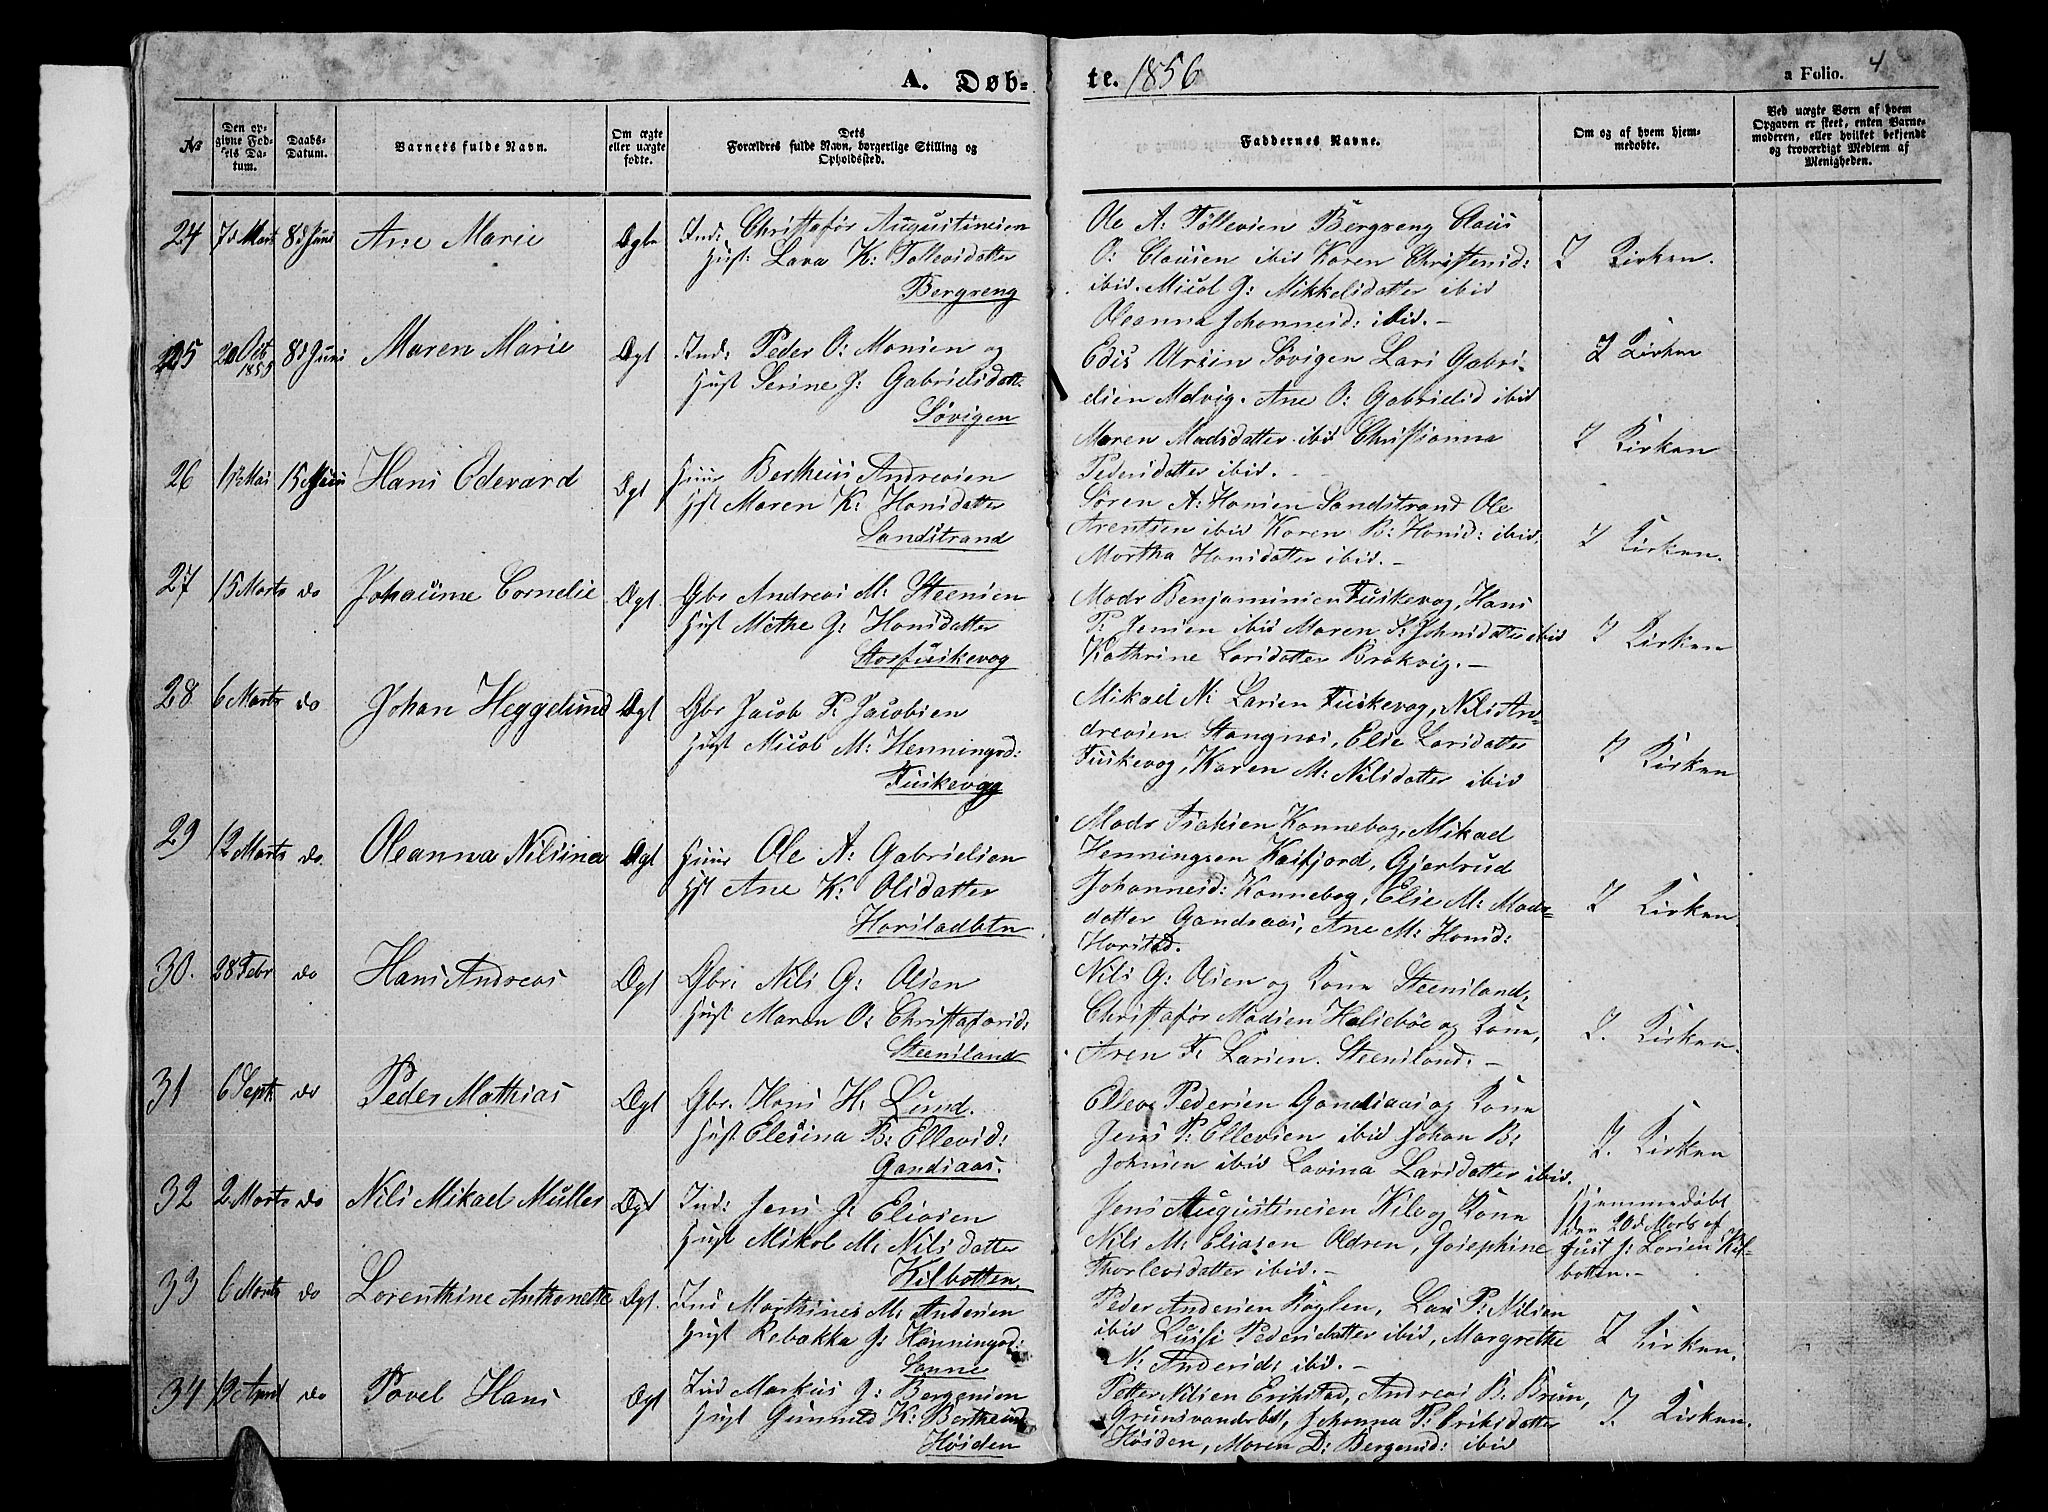 A. Døb-
te. 1856
a Folio. 4
No
Den op-
givne Fød-
sels Da-
tum.
Daabs-
Datum.
Barnets fulde Navn.
Om ægte
eller uægte
fødte.
Dets
Forældres fulde Navn, borgerlige Stilling og
Opholdssted.
Faddernes Navne.
Om og af hvem hjem-
medøbte.
Ved uægte Børn af hvem
Opgaven er skeet, enten Barne-
moderen, eller hvilket bekjendt
og troværdigt Medlem af
Menigheden.
24 7d Mars 8d Juni Ane Marie Ægte Ind: Christafor Augustinsen
Hust: Lava K: Tollevsdatter
Bergseng
Ole A: Tollevsen Bergseng Claus
O: Clausen ibid Karen Christensd:
ibid. Micol J: Mikkelsdatter ibid
Oleanna Johannesd: ibid. –
I Kirken.
25 20 Oct 1855 8d Juni Maren Marie Ægt Ind: Peder O: Monsen og
Hust Serine J: Gabrielsdatt.
Søvigen
Edis Ursin Søvigen Lars Gabri-
elsen Melvig. Ane O: Gabrielsd ibid
Maren Madsdatter ibid Christianna
Pedersdatter ibid. –
I Kirken
26 Mai 15 Juni Hans Edevard Ægt Huus Bertheus Andreasen
Hst Maren K: Hansdatter
Sandstrand
Søren A: Hansen Sandstrand Ole
Arentsen ibid Karen B: Hansd: ibid,
Martha Hansdatter ibid. –
I Kirken
27 15 Marts do Johanne Cornelie Ægt. Gbr Andreas M: Steensen
Hust Methe J: Hansdatter
Storfuskevog
Mads Benjaminsen Fuskevog, Hans
P: Jensen ibid Maren S: Johnsdatter ibid
Kathrine Larsdatter Brokvig. –
I Kirken.
28 6 Marts do Johan Heggelund Ægt Gbr Jacob P: Jacobsen
Hust Micol M: Henningsd:
Fuskevog
Mikael N: Larsen Fuskevog, Nils An-
dreasen Stangnes, Else Larsdatter
Fuskevog, Karen M: Nilsdatter ibid
I Kirken
29 12 Marts do Oleanna Nilsine Ægt Huus Ole A: Gabrielsen
Hst Ane K: Olsdatter
Harstadbtn
Mads Isaksen Kannebog, Mikael
Henningsen Kasfjord, Gjertrud
Johannesd: Kannebog, Else M: Mads-
datter Gandsaas, Ane M: Hansd:
Harstad.
I Kirken
30. 28 Febr do Hans Andreas Ægt Gbr: Nils G: Olsen
Hust Maren O: Christaforsd:
Steensland
Nils G: Olsen og Kone Steensland,
Christafor Madsen Halsebøe og Kone,
Aren F: Larsen Steensland: –
I Kirken
31 6 Sept do Peder Mathias Ægt Gbr. Hans H: Lund.
Hust Elesina B: Ellevsd:
Gandsaas.
Ellev Pedersen Gandsaas og Kone
Jens P: Ellevsen ibid Johan B:
Johnsen ibid Lavina Larsdatter ibid.
I. Kirken.
32 2 Marts do Nils Mikael Muller Ægt Ind: Jens J: Eliasen
Hust Mikol M: Nilsdatter
Kilbotten.
Jens Augustinsen Kile og Kone
Nils M: Eliasen Oldren, Josephine
Thorlevsdatter ibid. –
Hjemmedøbt
den 20d Marts af
Just J: Larsen Kil-
botten. –
33 6 Marts do Lorenthine Anthonette Ægt. Ind Marthines M: Andersen
Hust Rebakka J: Henningsd:
Sanne
Peder Andersen Røglen, Lars P: Nilsen
ibid Lussi Pedersdatter ibid, Margrethe
N: Andersd: ibid. –
I Kirken.
34 19 April do Povel Hans Ægt Ind Markus J: Bergersen
Hust Gunnild K: Bertheusd
Høiden
Petter Nilsen Erikstad, Andreas B: Brun,
Grunsvanderbt, Johanna P: Eriksdatter
Høiden, Maren D: Bergersd: ibid
I. Kirken.